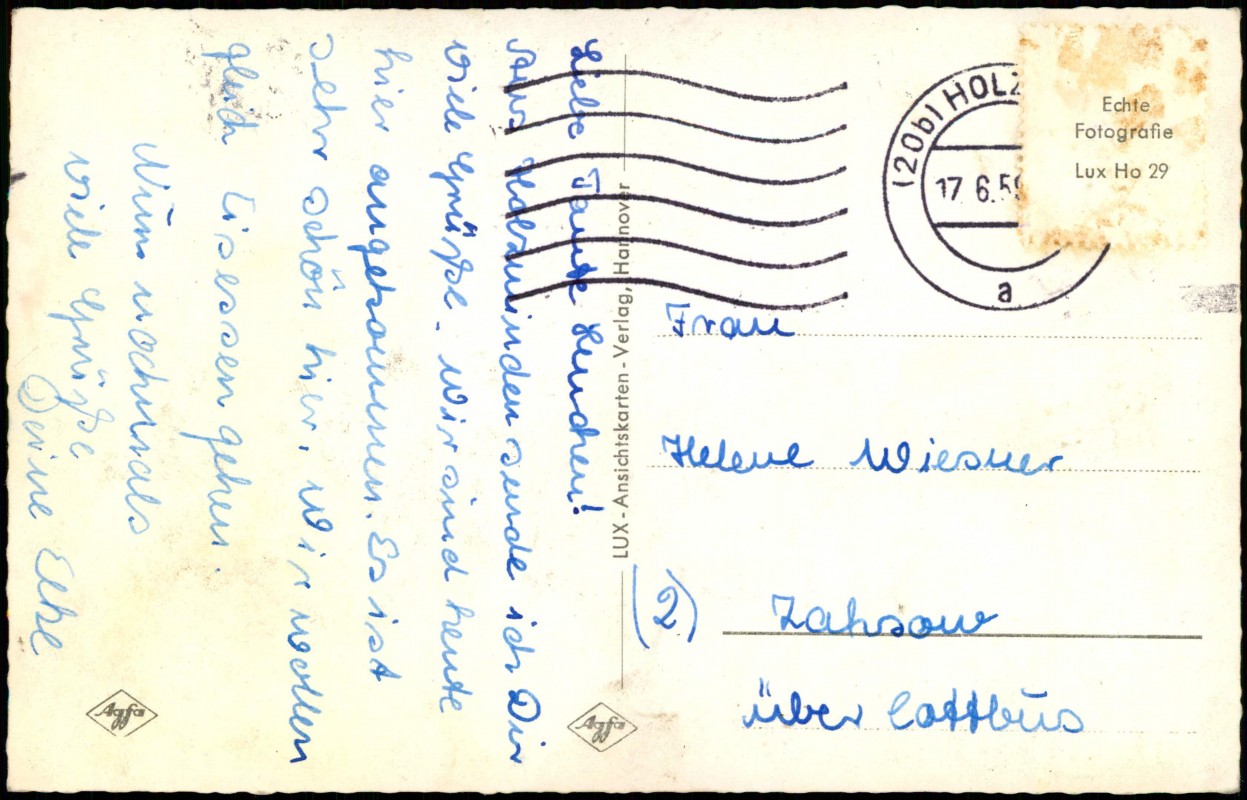 Liebe Tante Lenchen!
Aus Holzminden sende ich Dir
viele Grüße. Wir sind heute
hier angekommen. Es ist
sehr schön hier. Wir wollen
gleich Eis essen gehen.
Nun nochmals
viele Grüße
Deine Elke
Agfa
LUX-Ansichtskarten-Verlag, Hannover
Agfa
(20b) HOLZ
17 6.59
a
Echte
Fotografie
Lux Ho 29
Frau
Helene Wiesner
(2) Zahsow
über Cottbus